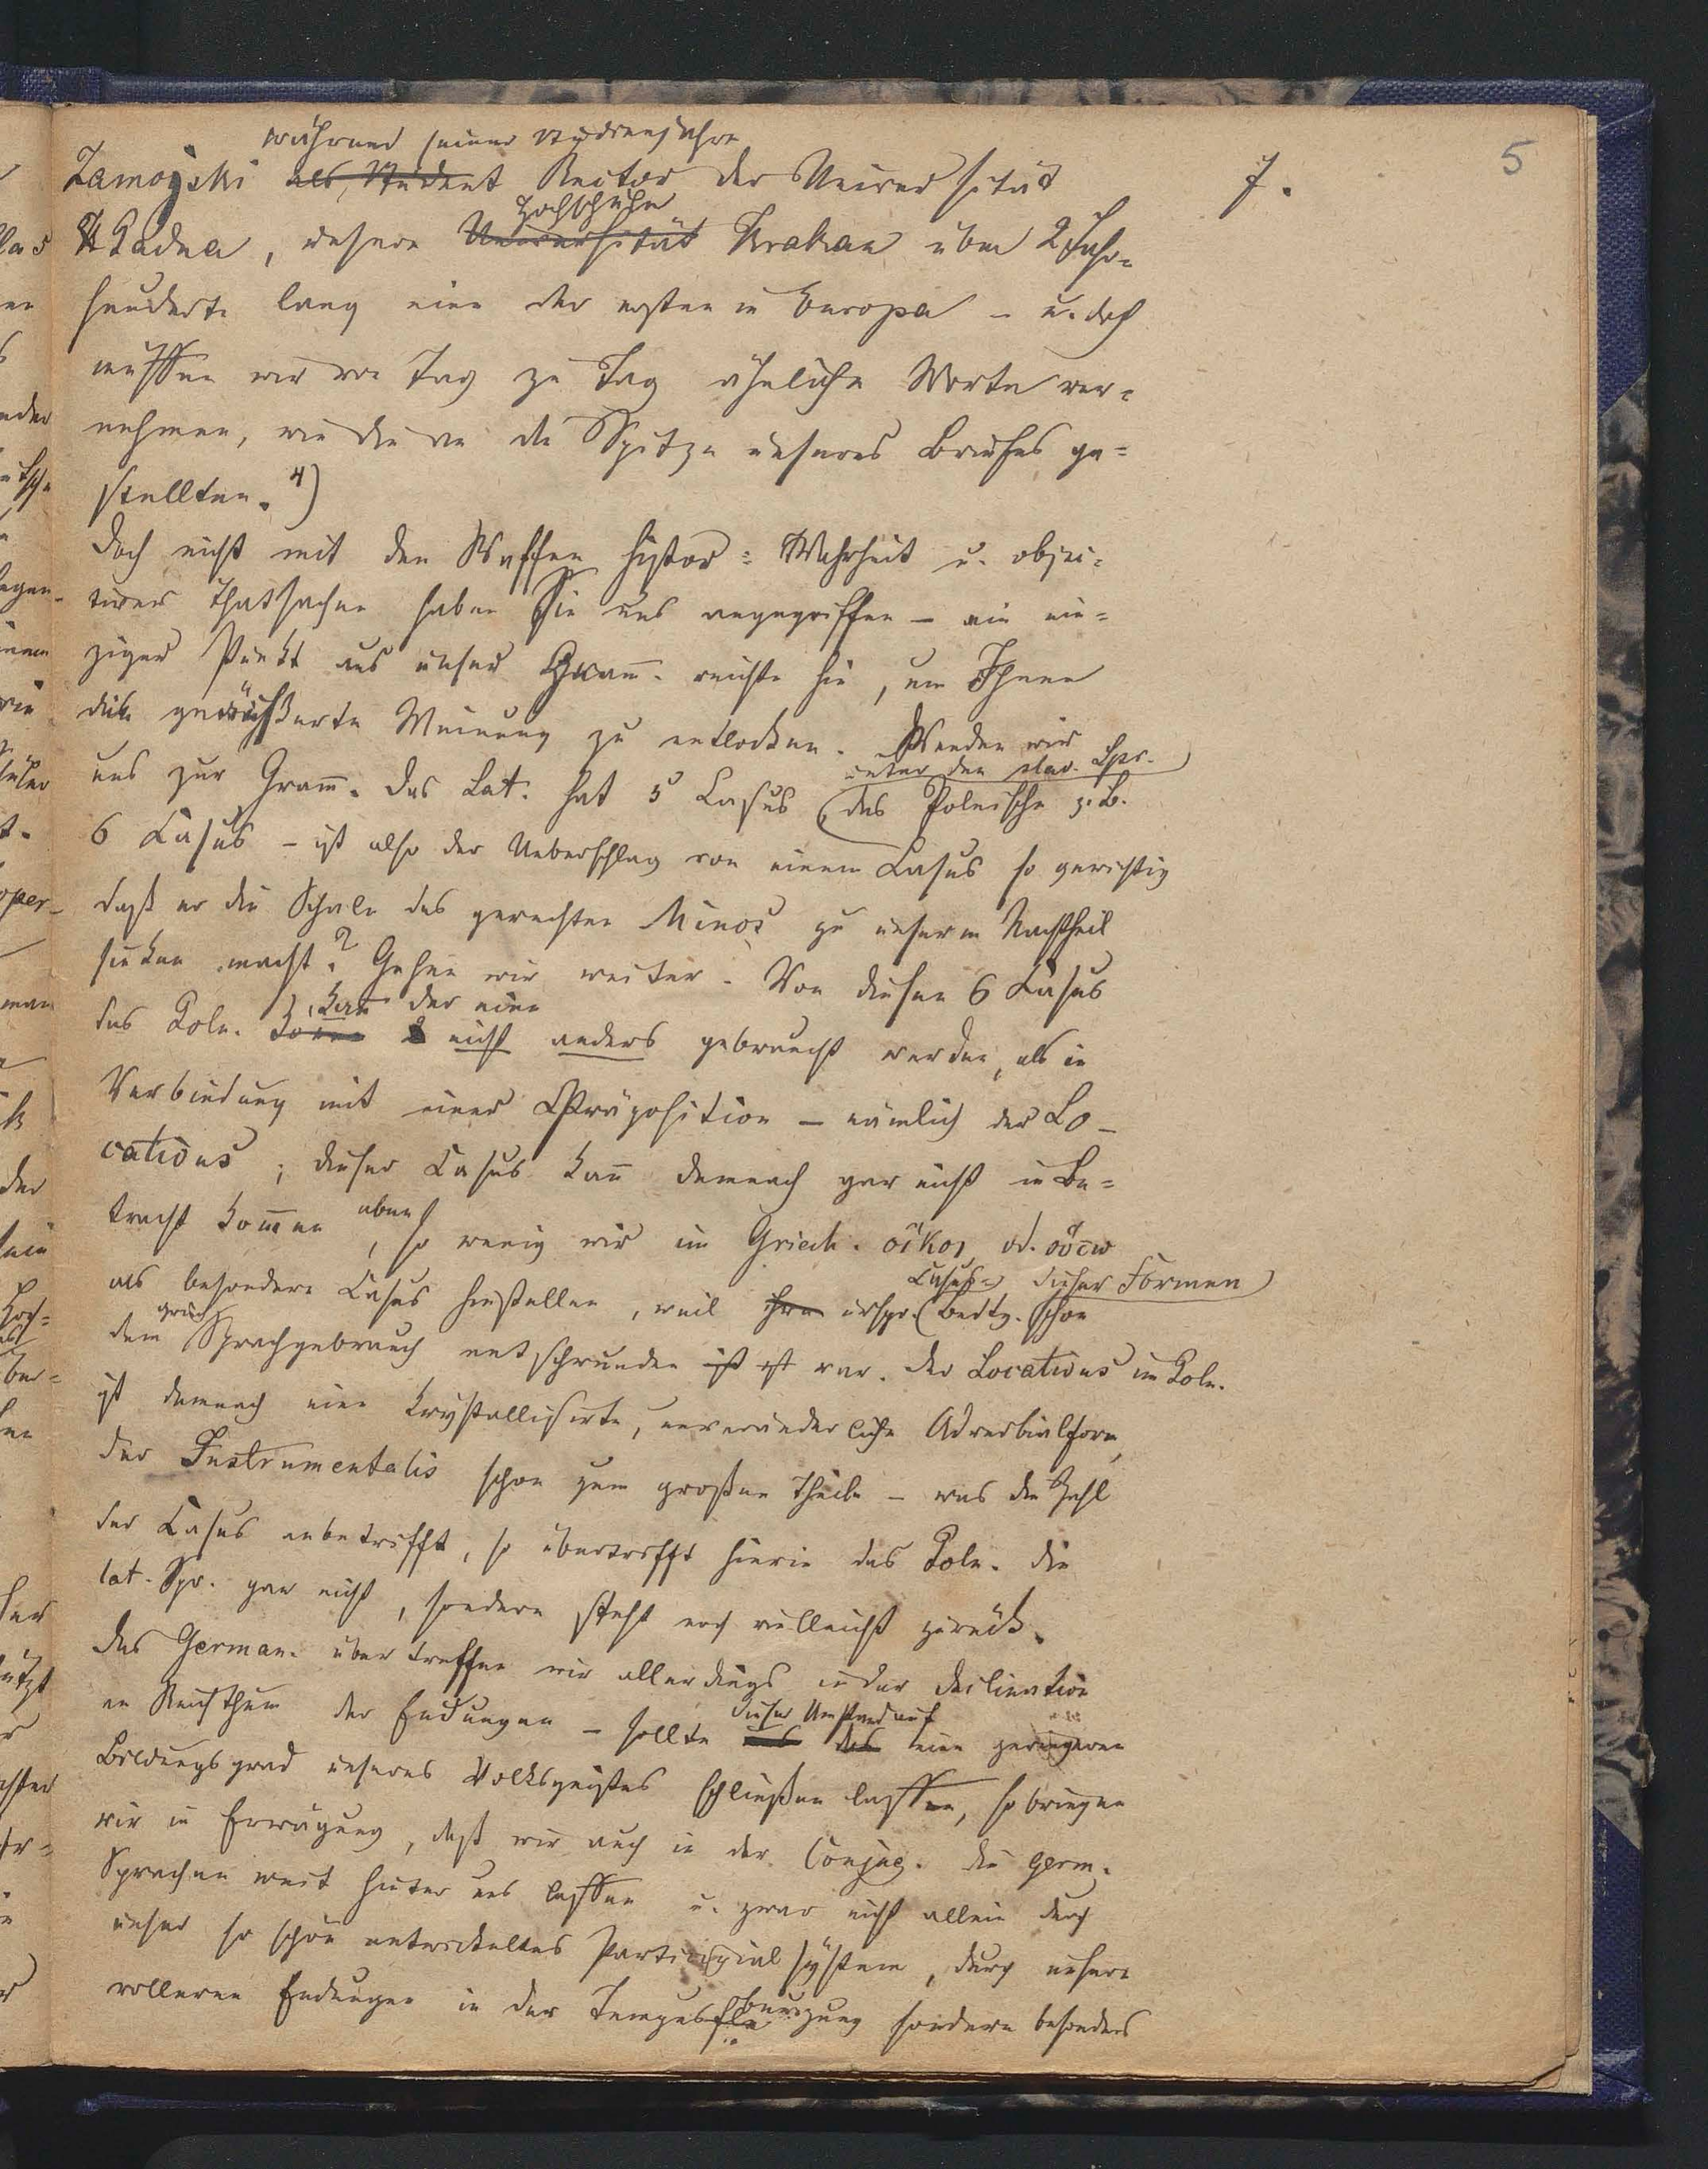 5
7.
während seiner Studienjahre
Zamojski als Student Rector der Universität
Padua, unsere Universität Hochschule Krakau über 2 Jahr-
hunderte lang eine der ersten in Europa – u. doch
müssen wir von Tag zu Tag ähnliche Worte ver-
nehmen, wie die an die Spitze unseres Briefes ge-
stellten. 4)
Doch nicht mit den Waffen histor: Wahrheit u. objec-
tiver Thatsachen haben Sie uns angegriffen – ein ein-
ziger Punkt aus unser Gram̄. reichte hin, um Ihnen
die geäußerte Meinung zu entlocken. Wenden wir
unter den slav. Spr.
uns zur Gram̄. Das Lat. hat 5 Casus (das Polnische z. B.
6 Casus – ist also der Ueberschlag von einem Casus so gewichtig
daß er die Schale des gerechten Minos zu unserm Nachtheil
sinken macht? Gehen wir weiter. Von diesen 6 Casus
kan̄ der eine
des Poln. nicht anders gebraucht werden, als in
Verbindung mit einer Präposition – nämlich der Lo-
cativus; dieser Casus kan̄ demnach gar nicht in Be-
tracht kom̄en eben, so wenig wir im Griech. οἴκοι od. οὕτω
Casus- dieser Formen
als besondere Casus hinstellen, weil ihre urspr. (Bedtg. schon
griech
dem Sprachgebrauch entschwunden ist ist war. Der Locativus im Poln.
ist demnach eine krystallisirte, unveränderliche Adverbialform,
der Instrumentalis schon zum großen Theile – was die Zahl
der Casus anbetrifft, so übertrifft hierin das Poln. die
lat. Spr. gar nicht, sondern steht noch vielleicht zurück.
Das German. übertreffen wir allerdings in der Declination
an Reichthum der Endungen – sollte dieser Umstand auf
das einen geringeren
Bildungsgrad unseres Volksgeistes schließen lassen, so bringen
wir in Erwägung, daß wir auch in der Conjug. die germ.
Sprachen weit hinter uns lassen u. zwar nicht allein durch
unser so schön entwickeltes Participialsystem, durch unsere
volleren Endungen in der Tempus beugung sondern besonders